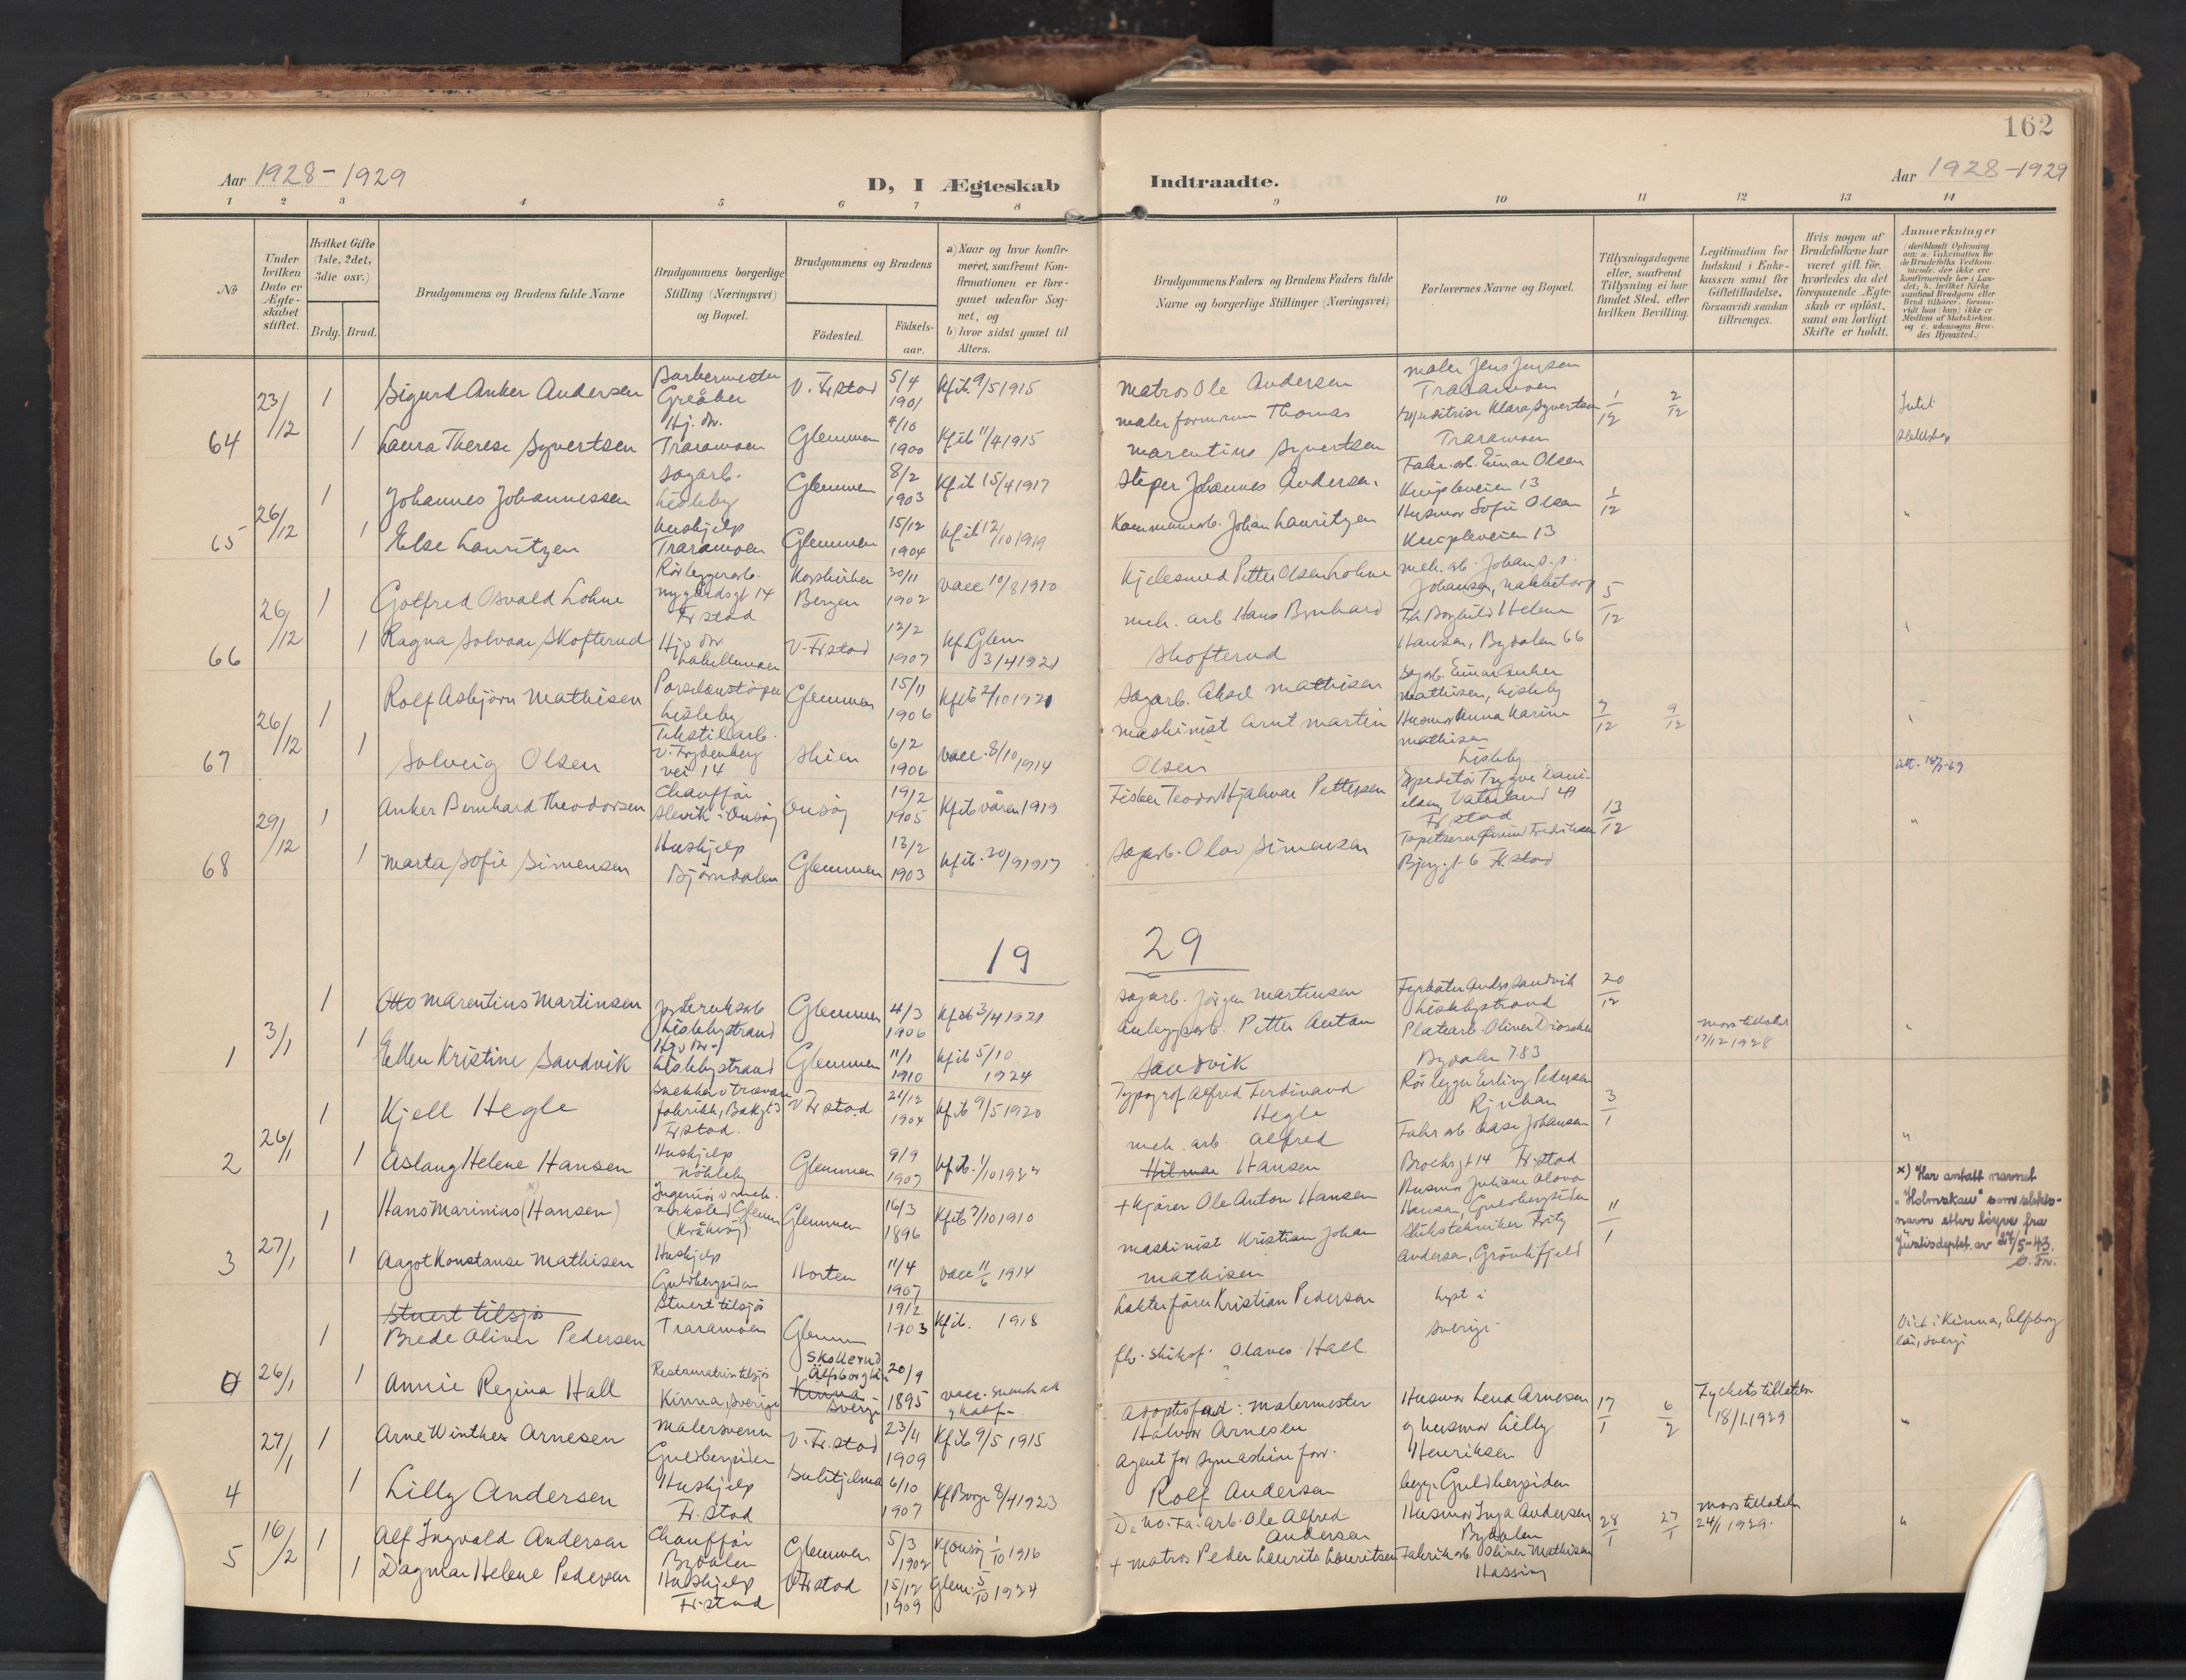 162
Aar 1928-1929
D, I Ægteskab
Indtraadte.
Aar 1928-1929
1 2 3 4 5 6 7 8 9 10 11 12 13 14
No
Under hvilken Dato er Ægte-skabet stiftet.
Hvilket Gifte (1ste, 2det, 3die osv.)
Brdg. Brud.
Brudgommens og Brudens fulde Navne
Brudgommens borgerlige Stilling (Næringsvei) og Bopæl.
Brudgommens og Brudens
Födested.
Födsels-aar.
a) Naar og hvor konfir-meret, saafremt Kon-firmationen er fore-gaaet udenfor Sog-net, og
b) hvor sidst gaaet til Alters.
Brudgommens Faders og Brudens Faders fulde Navne og borgerlige Stillinger (Næringsvei)
Forlovernes Navne og Bopæl.
Tillysningsdagene eller, saafremt Tillysning ei har fundet Sted, efter hvilken Bevilling.
Legitimation for Indskud i Enke-kassen samt for Giftetilladelse, forsaavidt saadan tiltrænges.
Hvis nogen af Brudefolkene har været gift för, hvorledes da det foregaaende Ægte-skab er oplöst, samt om lovligt Skifte er holdt.
Anmerkninger
64 23/12 1 Sigurd Anker Andersen Barbermester Greåker V. Fr.stad 5/4 1901 Kf ib 9/5 1915 Matros Ole Andersen maler Jens Jensen Traramoen 1/12 2/12
1 Laura Therese Syvertsen Hj. dr. Traramoen Glemmen 4/10 1900 Kf ib 11/4 1915 malerformann Thomas Marentius Syvertsen Klara Syvertsen Traramoen
65 26/12 1 Johannes Johannessen Sagarb. Lisleby Glemmen 8/2 1903 Kf ib 15/4 1917 Støper Johannes Andersen Fabr. arb. Einar Olsen Knipleveien 13 1/12 "
1 Else Lauritzen Hushjelp Traramoen Glemmen 15/12 1904 Kf ib 12/10 1919 Kommunearb. Johan Lauritzen Husmor Sofie Olsen Knipleveien 13
66 26/12 1 Gotfred Osvald Lohne Rørleggerarb. Nygårdsgt 14 Fr stad Korskirken Bergen 30/11 1902 vacc 10/8 1910 Kjelesmed Petter Olsen Lohne mek. arb. Johan Johansen, Nabbetorp 5/12
1 Ragna Solvaar Skofterud Hj v dr V. Fr stad 12/2 1907 Kf Glem 3/4 1921 mek. arb Hans Bernhard Skofterud Borghild Helene Hansen, Bydalen 66
67 26/12 1 Rolf Asbjørn Mathisen Porselænstøper Lisleby Glemmen 15/11 1906 Kf ib 2/10 1921 Sagarb. Aksel Mathisen Sagarb. Einar Anker Mathisen, Lisleby 7/12 9/12
1 Solveig Olsen Tekstilarb. V. Frydenberg vei 14 Skien 6/2 1906 vacc. 8/10 1914 Maskinist Arnt Martin Olsen Husmor Anna Karine Mathisen Lisleby
68 29/12 1 Anker Bernhard Theodorsen Chauffør Slevik i Onsøy Onsøy 19/2 1905 Kf ib våren 1919 Fisker Teodor Hjalmar Pettersen Ekspeditør Trygve Danielsen, Vaterland 41 Fr stad 13/12 "
1 Marta Sofie Simensen Hushjelp Bjørndalen Glemmen 13/2 1903 Kf ib. 30/9 1917 Sagarb. Olav Simensen Tapetserer Fredriksen Bjergg. 6 Fr. stad
19 29
1 3/1 1 Otto Marentius Martinsen Lislebystrand Glemmen 4/3 1906 Kf ib 3/4 1921 Sagarb. Jørgen Martinsen Fyrbøter Anders Sandvik Lislebystrand 20/12
1 Ellen Kristine Sandvik Lislebystrand Glemmen 11/1 1910 Kf ib 5/10 1924 Anleggsarb. Petter Anton Sandvik Platearb. Oliver Bydalen 783 mors tillatelse 17/12 1928 "
2 26/1 1 Kjell Hegle Snekker v trævare fabrikk, Bakgt 3 Fr stad. V Fr stad 24/12 1904 Kf ib 9/5 1920 Typograf Alfred Ferdinand Hegle Rørlegger Erling Pedersen Rjukan 3/1
1 Aslaug Helene Hansen Hushjelp Nøkleby Glemmen 9/9 1907 Kf ib. 1/10 1922 mek. arb. Alfred Hilmar Hansen Fabr arb. Aase Johansen Brocksgt 14 Fr. stad "
3 27/1 1 Hans Marinius (Hansen) x) Ingeniør v mek. verksted Glemm (Kråkerøy) Glemmen 16/3 1896 Kf ib 2/10 1910 + Kjører Ole Anton Hansen Husmor Juliane Olava Hansen, Guldbergsiden 11/1
x) Har antatt navnet "Holmskau" som slekts-navn etter løyve fra Justisdeptet. av 24/5-43.
1 Aagot Konstanse Mathisen Hushjelp Guldbergsiden Horten 11/4 1907 vacc 11/6 1914 Maskinist Kristian Johan Mathisen Fritz Andersen, Grønlifjeld
0 26/1 Stuert tilsjøs
1 Brede Oliver Pedersen Stuert tilsjøs Traramoen Glemm 19/2 1903 Kf ib. 1918 Lekterfører Kristian Pedersen lyst i Sverige. Viet i Kinna, Elfsborg län, Sverige
1 Annie Regina Hall Restauratrise tilsjøs Kinna, Sverige Skallerud Älfsborg län Kinna Sverige 20/9 1895 vacc. Olaves Hall
4 27/1 1 Arne Winther Arnesen Malersvenn Guldbergsiden V. Fr. stad 23/4 1909 Kf ib 9/5 1915 Adoptivfad: Malermester Halvor Arnesen Husmor Lena Arnesen og husmor Lilly Henriksen begge Guldbergsiden 17/1 6/2 Fylkets tillatelse 18/1 1929 "
1 Lilly Andersen Hushjelp Fr. stad Sulitjelma 6/10 1907 Kf Borge 8/4 1923 Agent for symaskin forr. Rolf Andersen
5 16/2 1 Alf Ingvald Andersen Chauffør Bydalen Glemmen 5/3 1902 Kf Onsøy 1/10 1916 De No. Fa. arb. Ole Alfred Andersen Husmor Inga Andersen Bydalen 28/1 27/1 mors tillatelse 24/1 1929. "
1 Dagmar Helene Pedersen Hushjelp Fr. stad V Fr stad 15/12 1909 Glem. 5/10 1924 + Matros Peder Laurits Lauritsen Fabrikarb. Oliver Mathisen Hassing